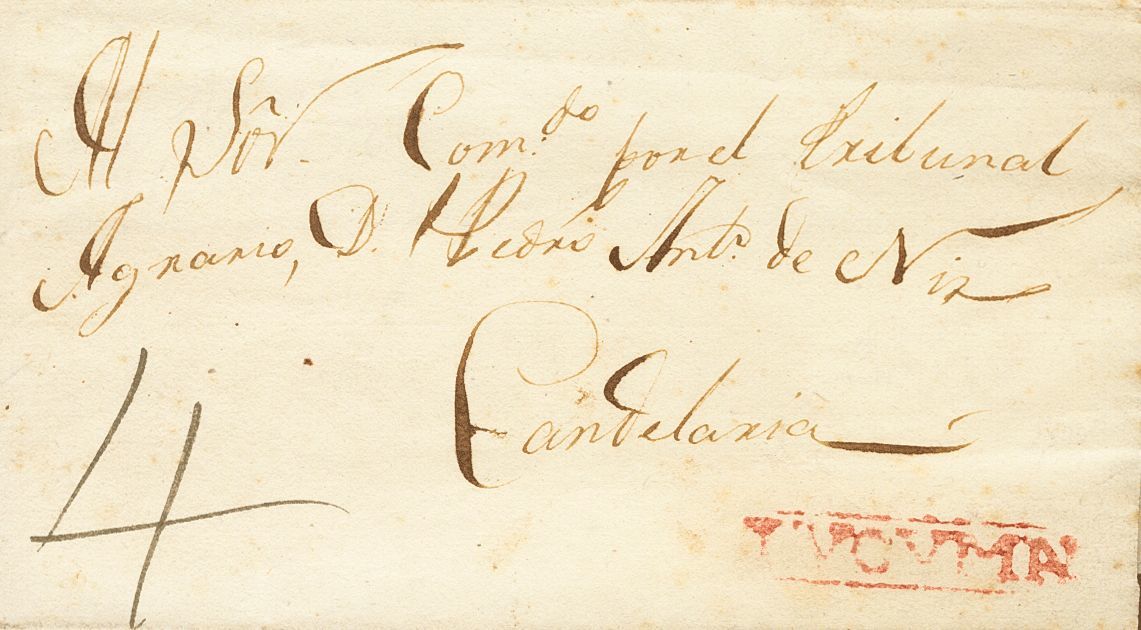 Al Sõr. Com.do por el Tribunal
Agrario, D. Pedro Ant.o de Niz
Candelaria
4